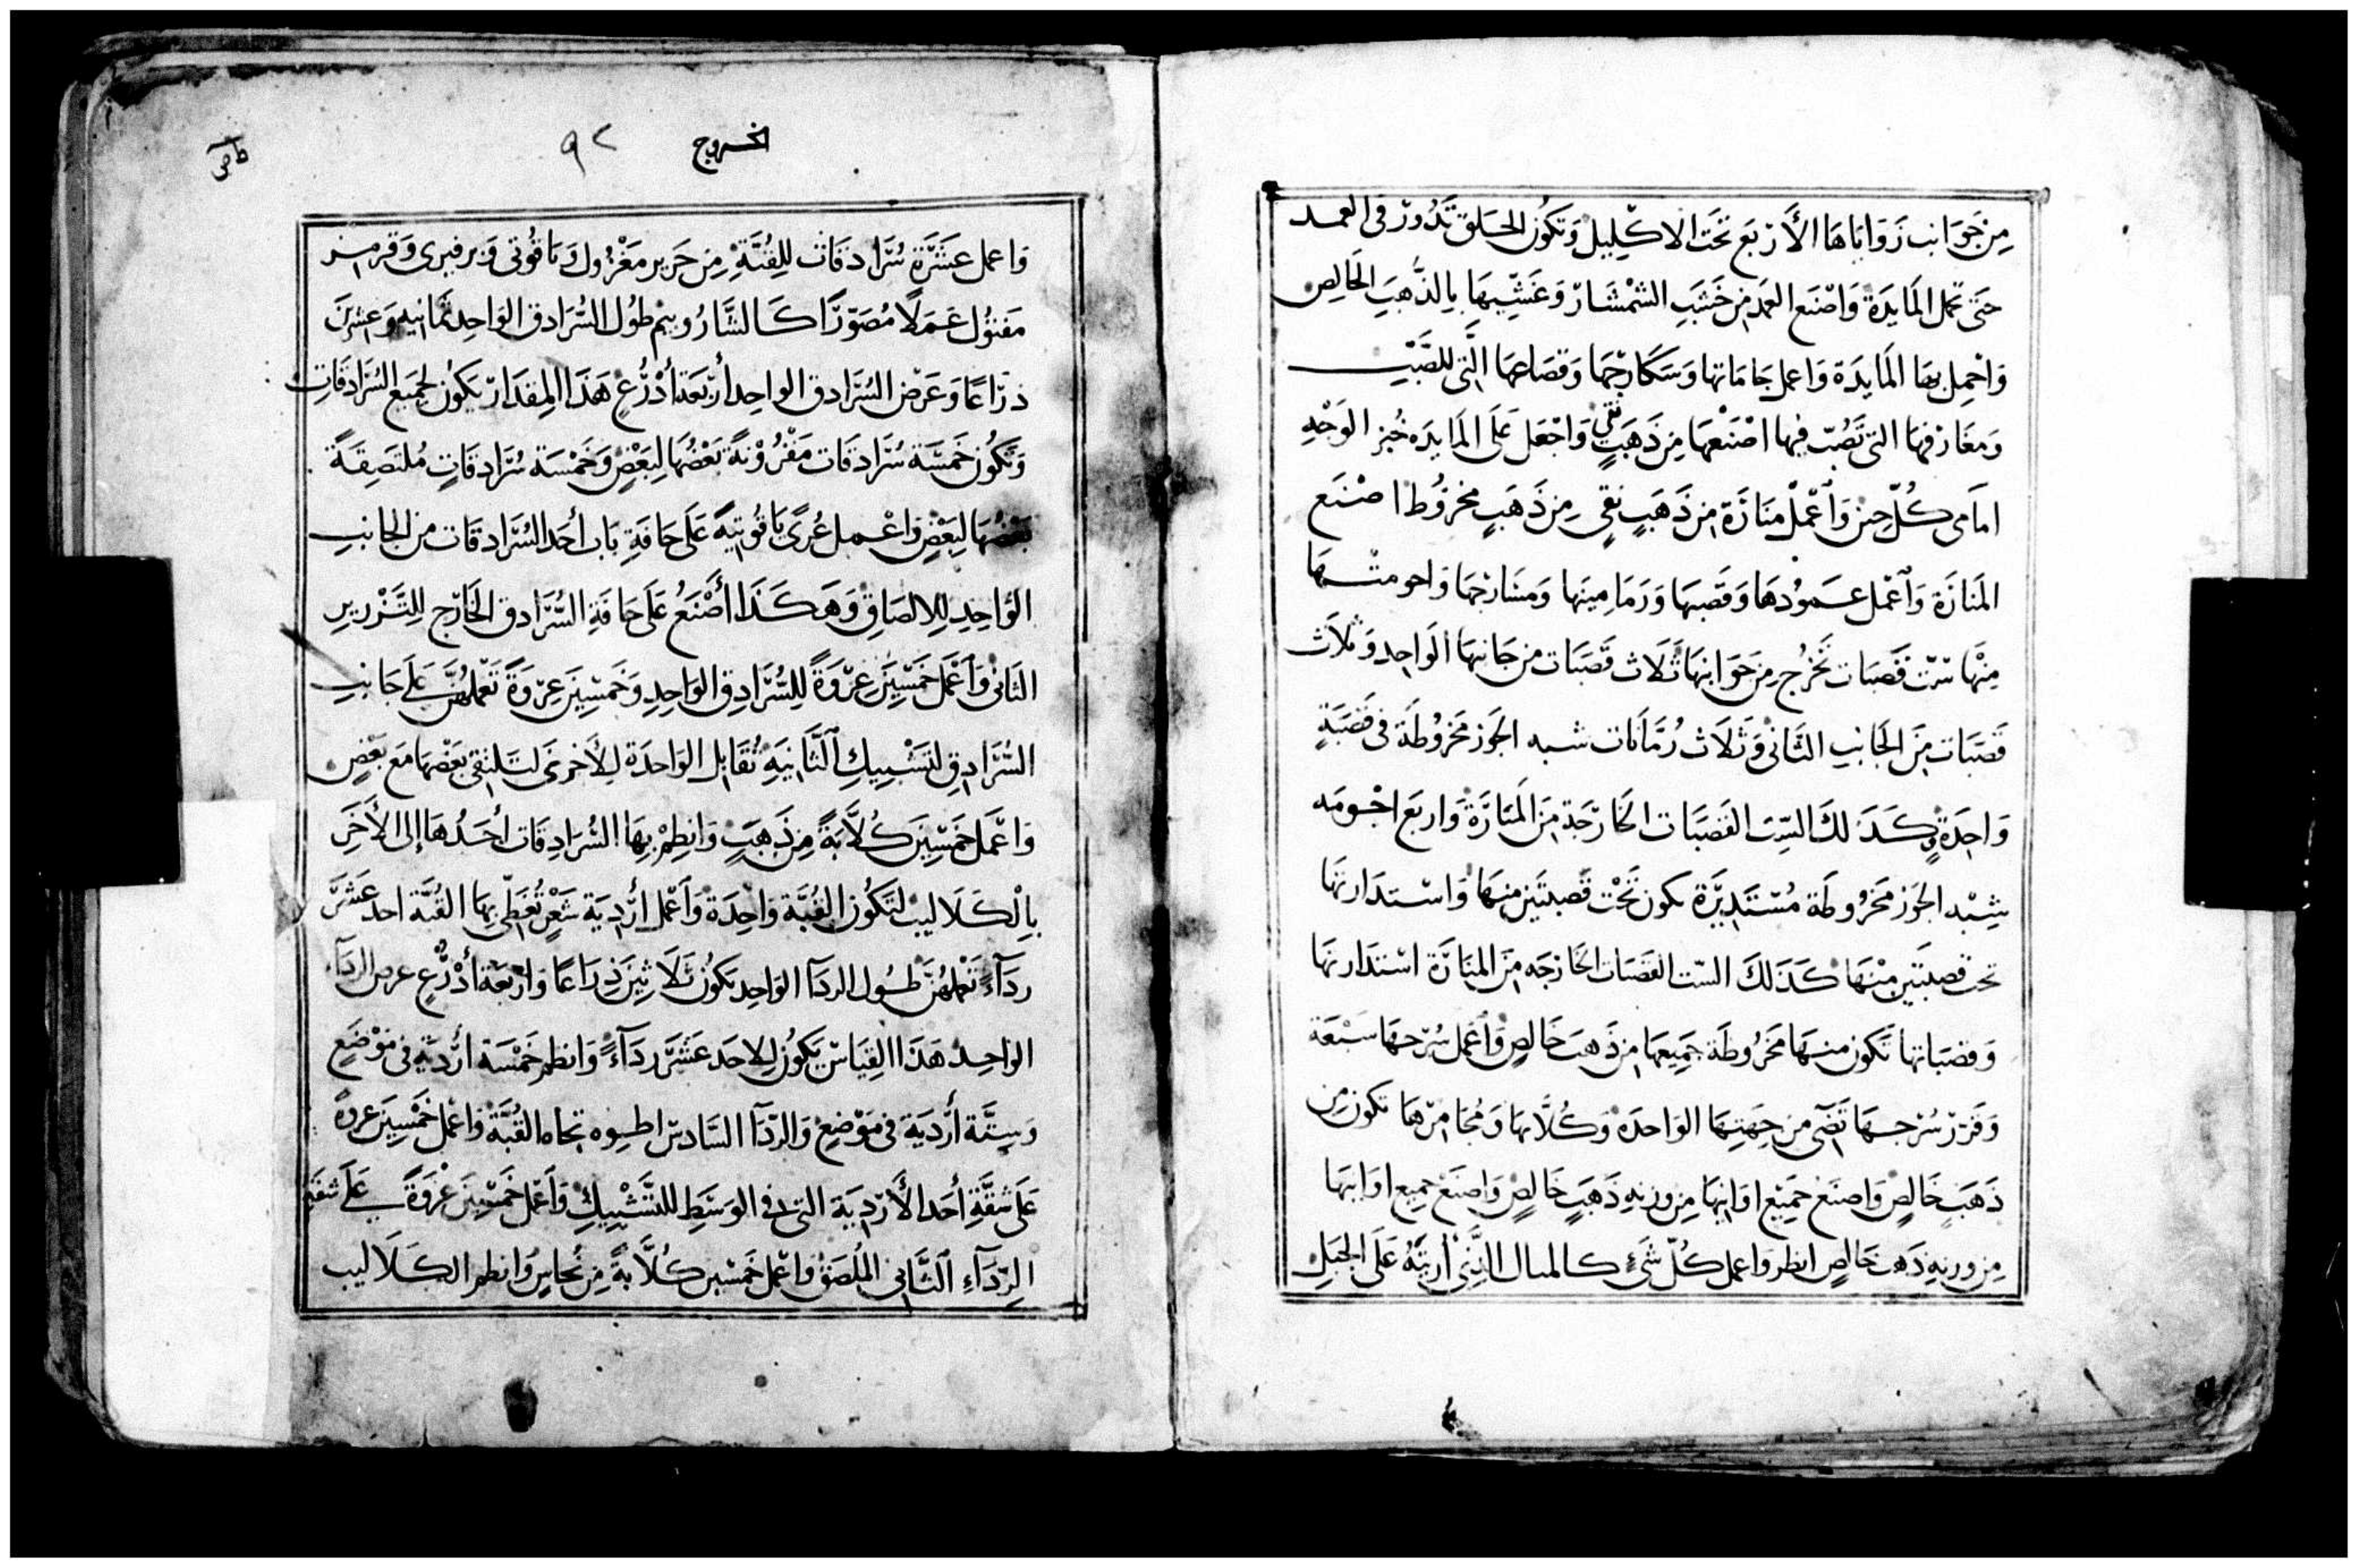 مِن جَوَانب زَوَاياهَا الأَرْبَع تحَت الاكْلِيل وَتكَون الحَلق تَدُورْ فى العمد
حَتى تحمل المَايدَة وَاصْنع العمد مِن خَشَبِ الشمْشَار وَغَشّيهَا بِالذَّهبِ الخَالِص
وَاحْمِل بهَا المَايدَة وَاعمل جَامَاتها وَسَكَارجهَا وَقصَاعهَا الَّتى للصَّبْيب
وَمغَارفهَا التى تَصُبّ فيهَا اصْنَعْهَا مِن ذَهَبٍ نقى وَاجْعَل عَلَى المَايدَه خُبز الوَجْهِ
امَامى كُلّ حِين وَٱعْمَلْ مَنَارَة مِن ذَهَبٍ نقِىٍ مِن ذَهَبٍ مخرُوُط اصْنَع
المَنَارَة وَٱعْمل عَمُودهَا وَقَصَبهَا وَرمَامِينها وَمسَارجهَا وَاحومتها
مِنْهَا ستّ قَصبَات تَخْرُج مِن جَوَانِبهَا ثَلَاث قَصَبَات من جَانِبهَا الوَاحِدِ وَثَلَاث
قَصَبَات مِنَ الجَانبِ الثَّانى وَثلَاث رُمَّانَات شبه الجَوز مَخرُوطَة فى قصَبَةٍ
وَاحِدَةٍ وَكَدَلكَ السِّت القَصَبَات الخَارجَة مِنَ المَنَارَة وَاربَع احْومَه
شِبْه الجَوز مَخْرُوطَة مُسْتَدِيرَة تكون تَحْت قَصبتَين مِنهَا وَاسْتدَارتهَا
تحت قصبتَين مِنْهَا كَدَلكَ السّت القَصَبَات الخَارجَه مِنَ المَنَارَة اسْتدَارتهَا
وَقصَبَاتها تَكون منهَا مَخرُوطَة جَمِيعهَا مِن ذَهب خَالِصٍ وَٱعْمل سُرْجهَا سَبْعَة
وَقَرْر سُرْجهَا تَضى من جِهَتِهَا الوَاحدَة وَكُلَّابهَا وَمجَامِرْهَا تكون مِن
ذَهَبٍ خَالِصٍ وَاصنَعْ جَمِيْع اوَانيهَا مِن وزنه ذَهَبٍ خَالِصٍ وَاصنَعْ جمِيع اوَانيهَا
مِن وزنه ذَهَب خَالِصٍ انظر وَاعمل كُلّ شَئٍ كالمثال الَّذِى أريتَهُ عَلَى الجَبَلِ
الخروج
٩٢
وَاعمل عَشَرَة سُرَادقَات لِلقُبَّةِ مِن حَرير مَغْزُول يَاقُوتى وَبرفيرى وَقرمز
مَفتُول عَمَلًا مُصَوَّرًا كَالشَّارُوبيم طُول السُّرَادق الوَاحِد ثمَانيه وَعِشرين
ذرَاعًا وَعَرْض السُّرَادق الواحِد أرْبَعَة أذْرُعٍ هَذَا المقدَار يكون لجَميع السُّرَادقَاتِ
وَتَكُون خَمسَة سُرَادقَات مَقْرُوْنَةً بَعْضُهَا لِبَعْضٍ وَخَمْسَة سُرَادقَاتٍ مُلتَصِقَةً
بَعْضُهَا لِبَعْضٍ وَاعْمل عُرًى يَاقُوتيَّةً عَلَى حَافَةِ بَاب أحَد السُّرَادقَات من الجَانبِ
الوَاحِدِ لِلالصَاقِ وَهَكَذَا أصْنَعُ عَلَى حَافَةِ السُّرَادق الخَارج لِلتَّزْرِيرِ
الثَانى وَٱعْمَل خَمْسِين عِرْوَةً لِلسُّرَادِق الوَاحِدِ وَخَمْسِين عِرْوَةً تَعْملهُنَّ عَلَى جَانبِ
السُّرَادِقِ لتَشْبِيكِ ٱلثَّانِيَهِ تُقَابل الوَاحدَة لِلأخرَى لتَلتقِى بَعْضهَا مَع بَعْضٍ
وَاعْمَل خَمْسِين كُلَّابَةً مِن ذَهَبٍ وَانظِمْ بِهَا السُّرَادِقَات أحَدُهَا إلى الأَخَرِ
بِالْكَلَاليب لتَكُون القُبَّة وَاحِدَة وَٱعْمل أرْدِيَة شَعْرٍ تُغَطّى بِهَا القُبَّة احد عَشَرَ
ردَآءً تَعْملهُنَّ طُول الردَآ الوَاحِد يَكُون ثَلَاثِينَ ذِرَاعًا وَارْبَعَة أذْرُعٍ عرض الردَآء
الوَاحِد هَذَا القِيَاسْ يَكُون لِلاحَد عَشَرَ ردَآءً وَانظم خَمْسَة أرْدِيَة فى مَوْضَعٍ
وَسِتَّة أَرْدِيَة فى مَوْضعٍ وَالرّدَآ السَّادس اطوِه تجَاه القُبَّة وَاعْمل خَمْسِين عروةً
عَلَى شقَّةِ أحَد الأَرْدِيَة التى فى الوَسَطِ للتَّشْبِيكِ وَٱعْمل خَمْسِين عُرْوَةً عَلَى شقة
الرِّدَآءِ ٱلثَّانِى المُلصَق وَاعْمل خَمْسِين كُلَّابَةً مِن نُحَاسٍ وَانظم الكَلَاليب